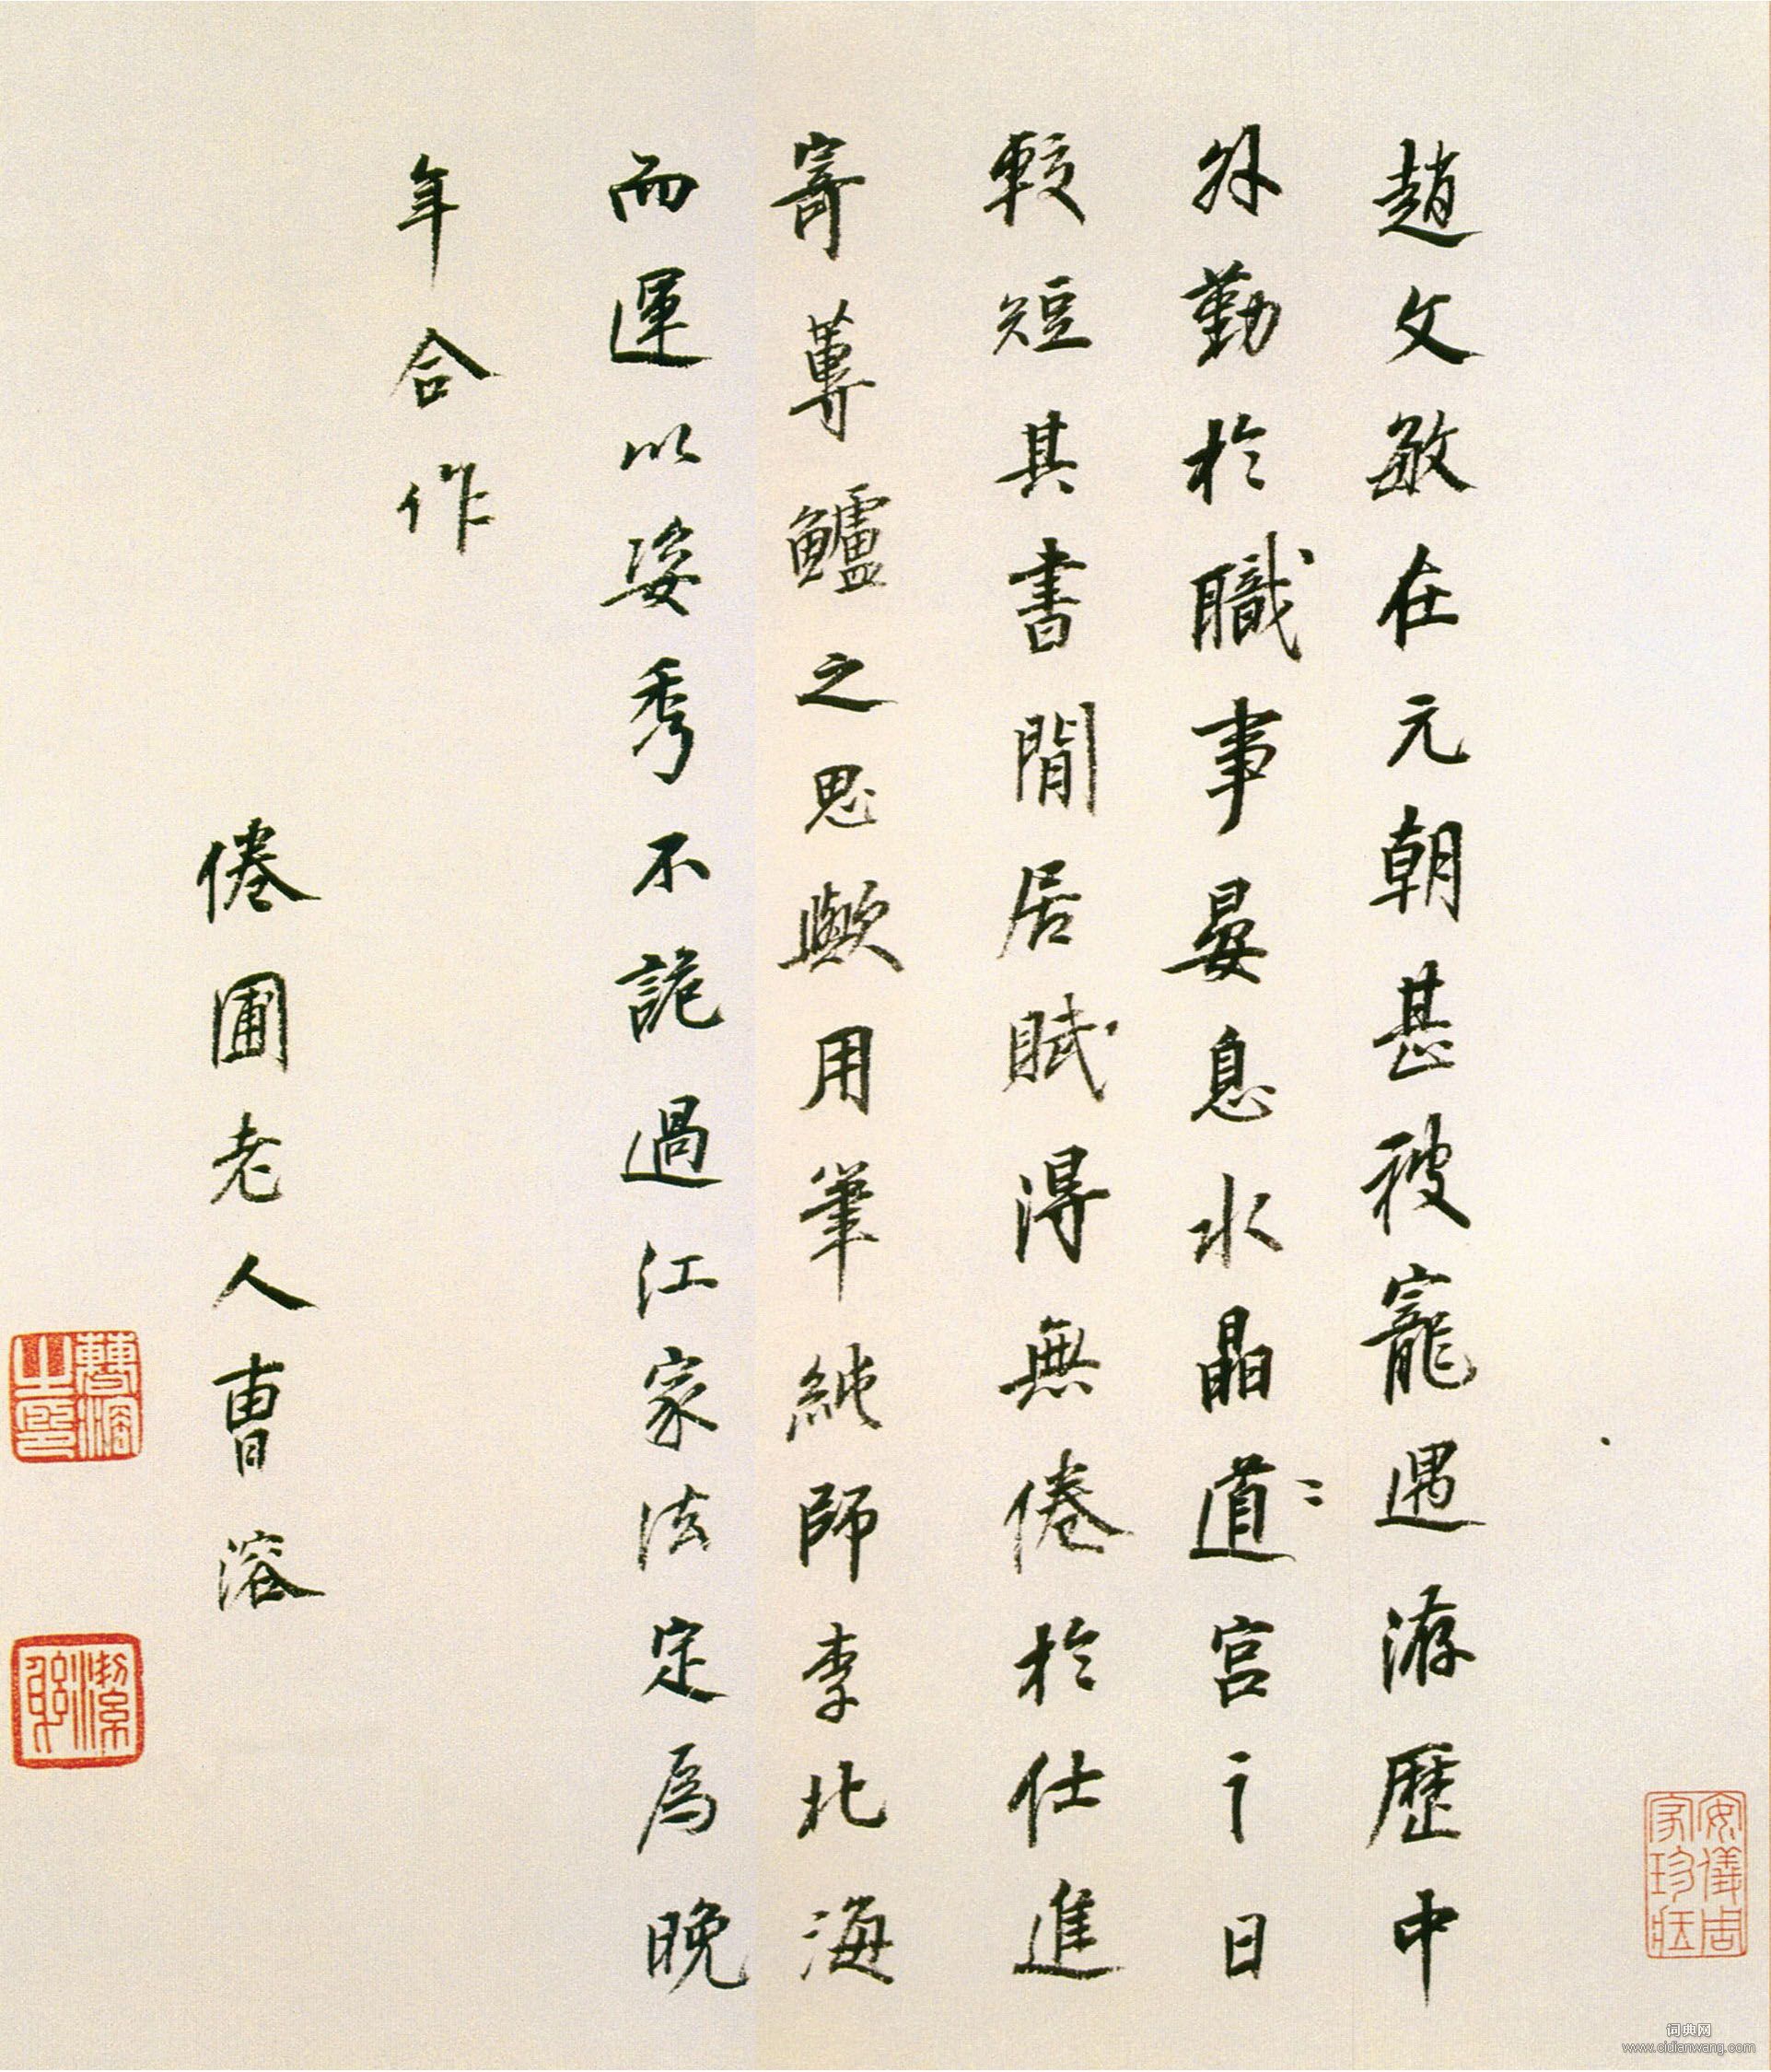 趙文敏在元朝甚被寵遇游歷中
外勤於職事晏息水晶道宮之日
較短其書閒居賦得無倦於仕進
寄蓴鱸之思歟用筆純師李北海
而運以姿秀不詭過江家法定為晚
年合作
倦圃老人曹溶
曹溶之印
潔躬
安儀周家珍藏
词典网
www.cidianwang.com